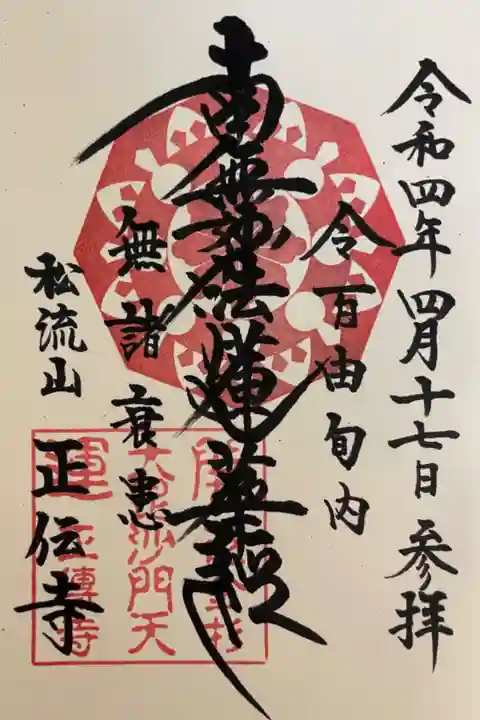 令和四年四月十七日 参拝
令百由旬内
南無妙法蓮華経
無諸衰患
松流山 正伝寺
開運
大毘沙門天
正傳寺